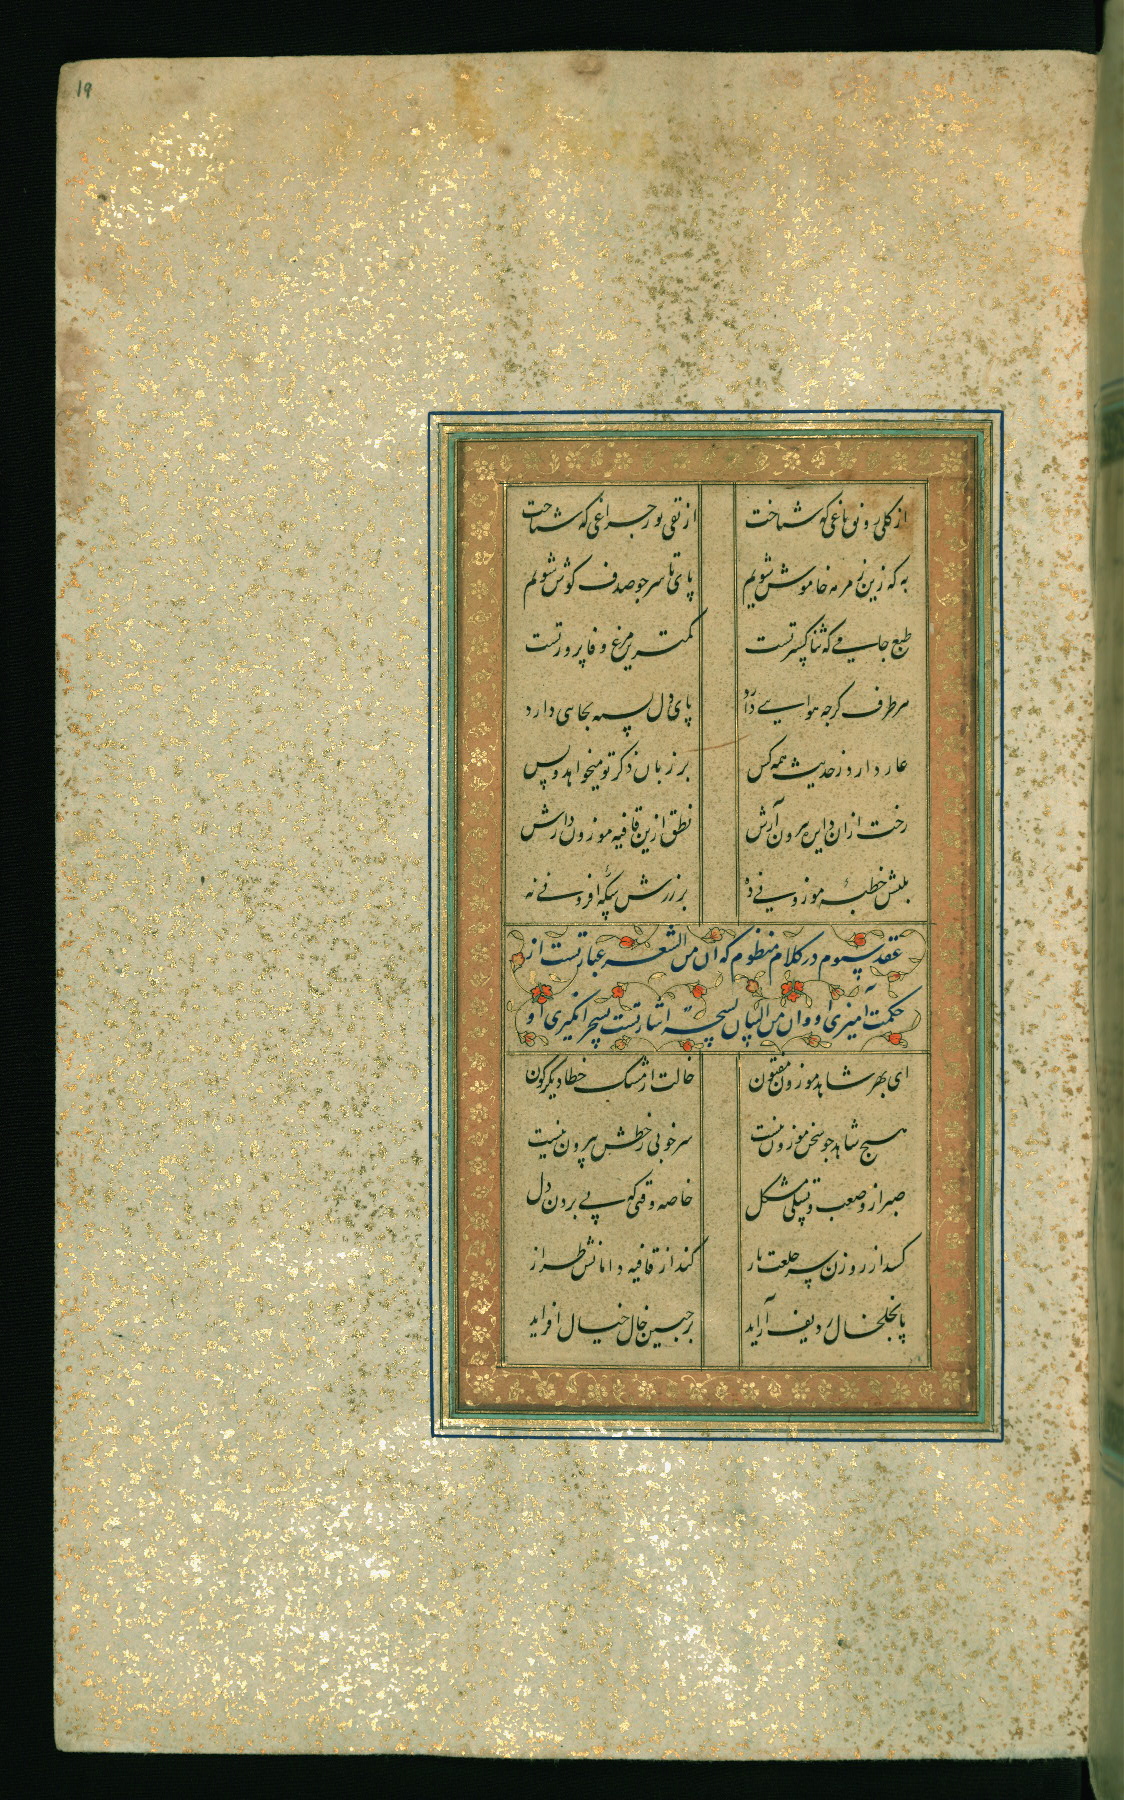 ۱۹
از گلی رونق باغی که شناخت از تفی نور چراغی که شناخت
به که زین زمزمه خاموش شویم پای تا سر چو صدف گوش شویم
طبع جامی که ثنا گستر تست کمترین مرغ وفا پرور تست
هر طرف گرچه هوایی دارد پای دل بسته بجایی دارد
عار دارد ز حدیث همه کس بر زبان ذکر تو میخواهد و بس
رخت ازان دایره بیرون آرش نطق ازین قافیه موزون دارش
بلبش خطبهٔ موزونی ده بر زرش سکهٔ افزونی نه
عقد سیوم در کلام منظوم که ان من الشعر عبارتست از
حکمت آمیزی او و ان من البیان لسحر اشارتست بسحر انگیزی او
ای بهر شاهد موزون مفتون حالت از مشک خطان دیگرگون
هیچ شاهد چو سخن موزون نیست سر خوبی ز خطش بیرون نیست
صبر ازو صعب و تسلی مشکل خاصه وقتی که پی بردن دل
کسد از روزن سر خلعت ناز کند از قافیه دامانش طراز
پا بخلخال ردیف آراید بر جبین خال خیال افزاید